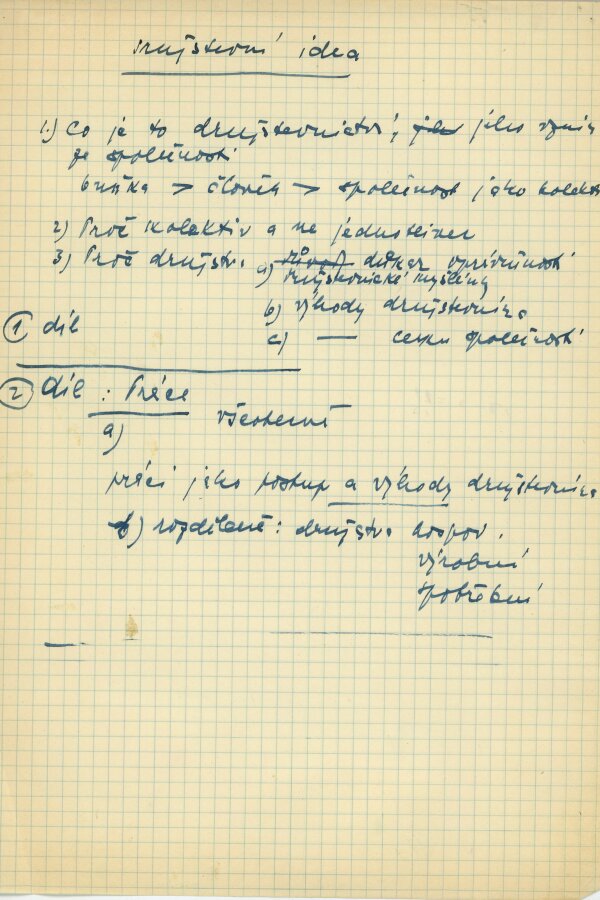 družstevní idea
1.) Co je to družstevnictví, jeho vznik
ze společnosti
buňka > člověk > společnost jako kolektiv
2) Proč kolektiv a ne jednotlivec
3) Proč družstvo a) důkaz oprávněnosti
družstevnické myšlenky
b) výhody družstevnic.
c) — celku společnosti
① díl
② díl : Práce
a) všeobecně
práci jako postup a výhody družstevnic.
b) rozděleně : družstvo hospod.
výrobní
spotřební